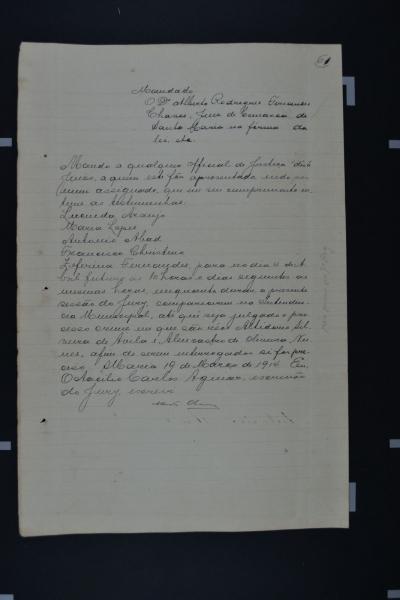 Mandado
O Dr Alberto Rodrigues Fernandes
Chaves, Juiz de Comarca de
Santa Maria na forma da
lei, etc.
Mando a qualquer official de Justiça deste
Juizo, a quem este fôr apresentado, indo
por mim assignado, que em seu cumprimento in
time as testemunhas:
Lucinda Araujo
Maria Lopes
Antonio Abad
Francisco Christino
Zeferina Fernandes, para no dia
horas e dias seguintes as
mesmas horas, enquanto durar a presente
sessão do Jury, comparecerem na Intenden
cia Municipal, até que seja julgado o pro
cesso crime em que são réos Sil
veira de Avila e de Oliveira Nu
nes, afim de serem interrogados si for pre
ciso, S. Maria 19 de Março de 1914. Eu,
Carlos Aguiar, escrivão
do Jury, escrevi